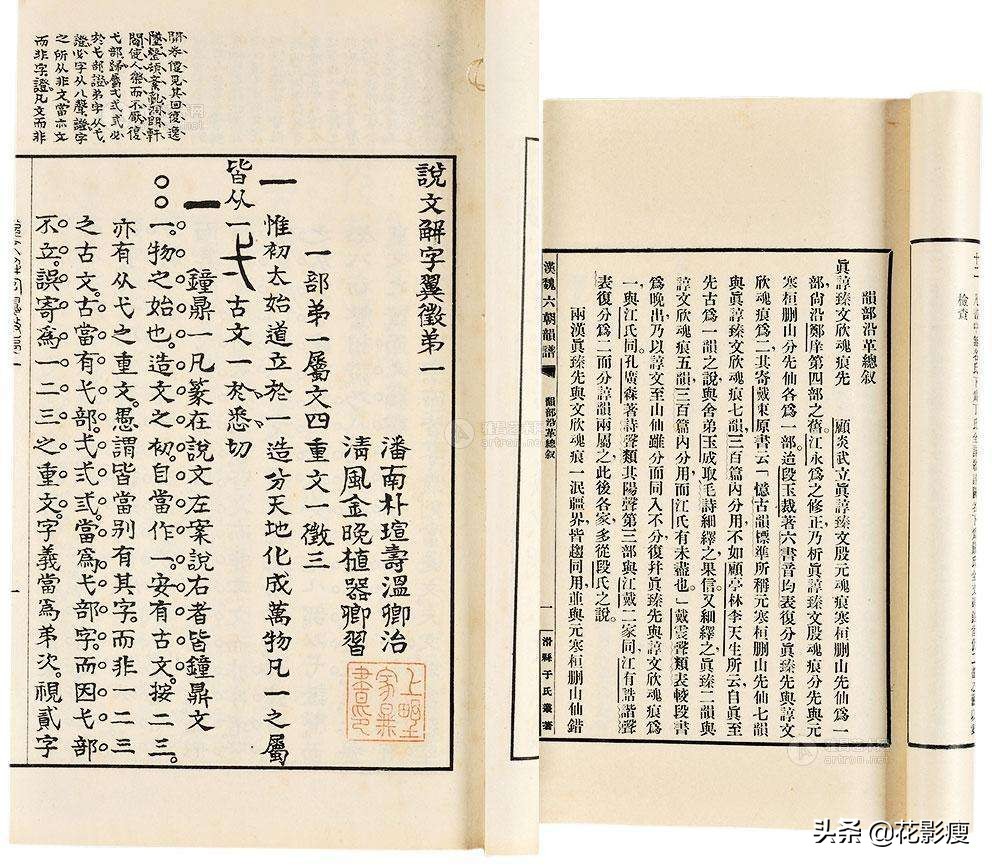 說文解字翼徵弟一
潘南朴瑄壽溫卿治
淸風金晚植器卿習
一部弟一屬文四重文一徵三
一
惟初太始道立於一造分天地化成萬物凡一之屬
皆从一弌古文一於悉切
一鐘鼎一凡篆在說文左案說右者皆鐘鼎文
一物之始也造文之初自當作一安有古文按二三
亦有从弋之重文愚謂皆當別有其字而非一二三
之古文古當有弋部弌弍弎當爲弋部字而因弋部
不立誤寄爲一二三之重文字義當爲弟次視貳字
間使人樂而不厭復
弋部歸屬弌弍弎必
於弋部證弟字从弋
證必字从八聲證字
之所从非文當亦文
而非字證凡文而非
韻部沿革總叙
眞諄臻文欣魂痕先　顧炎武立眞諄臻文殷元魂痕寒桓刪山先仙爲一
部尙沿鄭庠第四部之舊江永爲之修正乃析眞諄臻文殷魂痕分先與元
寒桓刪山分先仙各爲一部迨段玉裁著六書音均表復分眞臻先與諄文
欣魂痕爲二其寄戴東原書云「憶古韻標準所稱元寒桓刪山先仙七韻
與眞諄臻文欣魂痕七韻三百篇內分用不如顧亭林李天生所云自眞至
先古爲一韻之說與舍弟玉成取毛詩細繹之果信又細繹之眞臻二韻與
諄文欣魂痕五韻三百篇內分用而江氏有未盡也」戴震聲類表較段書
爲晚出乃以諄文至山仙雖分而同入不分復幷眞臻先與諄文欣魂痕爲
一與江氏同孔廣森著詩聲類其陽聲第三部與江戴二家同江有誥諧聲
表復分爲二而分諄韻兩屬之此後各家多從段氏之說
兩漢眞臻先與文欣魂痕一泯疆界皆趨同用並與元寒桓刪山仙錯
漢魏六朝韻譜
韻部沿革總叙
一
滑縣于氏叢著
檢査
雅昌艺术网
artron.net
头条 @花影瘦